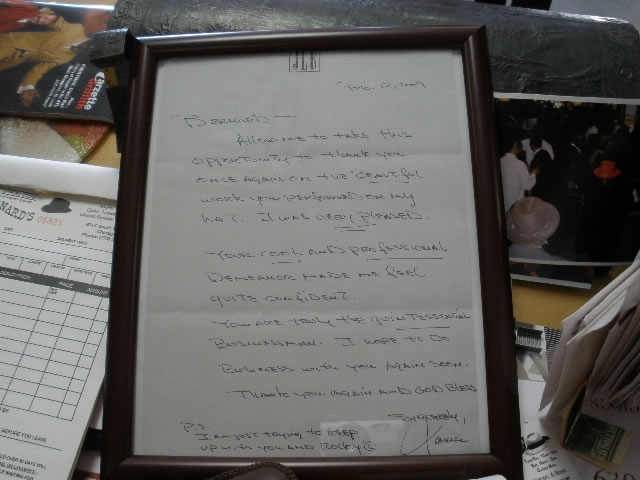 Gazette
NARD'S 05825
DESCRIPTION PRICE AMOUNT
BEFORE YOU LEAVE.
Feb. 2, 2009
BERNARD —
Allow me to take this
opportunity to thank you
once again on the beautiful
work you performed on my
hat. I was very pleased.
Your calm and professional
demeanor made me feel
quite confident.
You are truly the quintessential
businessman. I hope to do
business with you again soon.
Thank you again and God Bless
Sincerely,
P.S
I am just trying to keep
up with you and Rocky